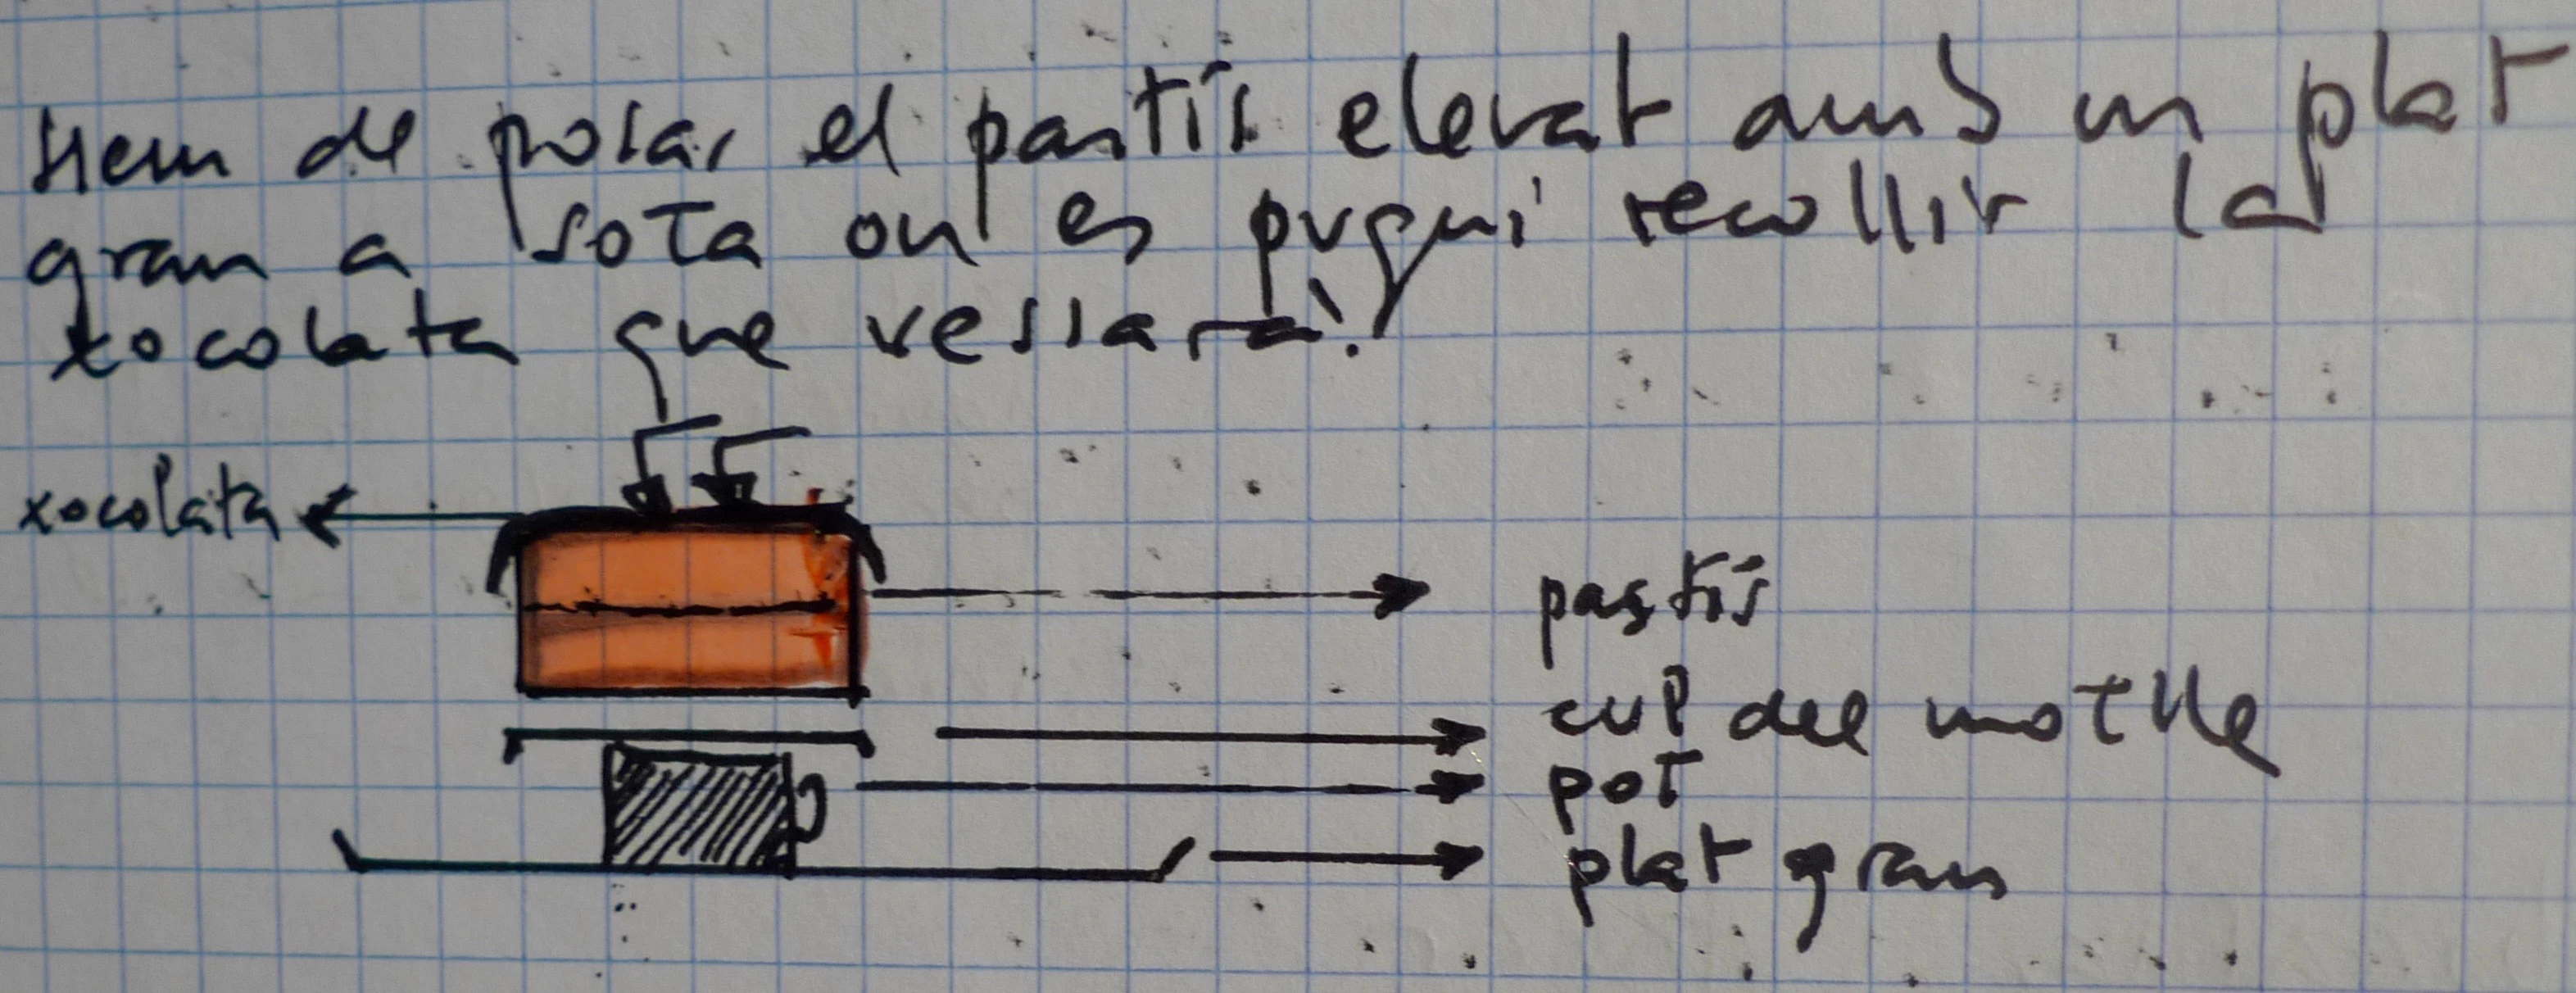 Hem de posar el pastís elevat amb un plat
gran a sota on es pugui recollir la
xocolata que vessarà!
xocolata
pastís
cul del motlle
pot
plat gran